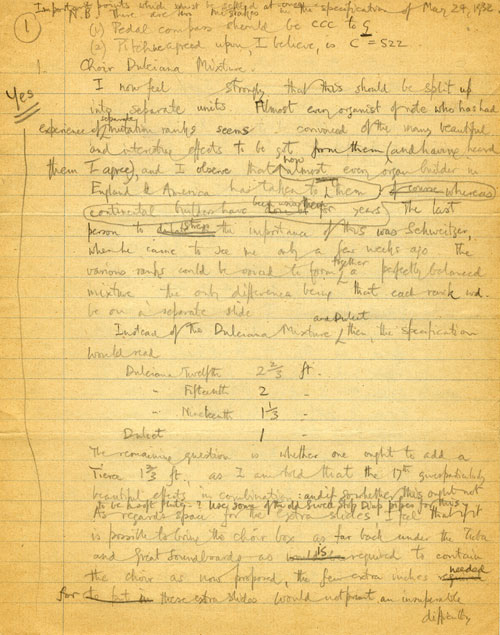 Important points which must be settled at once
N.B. There are two mistakes in the specification of May 24, 1932
① (1) Pedal compass should be CCC to G
(2) Pitch agreed upon, I believe, is C = 522
1. Choir Dulciana Mixture.
Yes
I now feel strongly that this should be split up
into separate units. Almost every organist of note who has had
experience of separate mutation ranks seems convinced of the many beautiful
and interesting effects to be got from them (and having heard
them I agree), and I observe that now almost every organ builder in
England & America has taken to them (of course whereas
continental builders have been using them for years) The last
person to stress the importance of this was Schweitzer,
when he came to see me only a few weeks ago. The
various ranks could be voiced to form together a perfectly balanced
mixture the only difference being that each rank wd.
be on a separate slide
Instead of the Dulciana Mixture and Dulcet then, the specification
would read
Dulciana Twelfth 2 2/3 ft.
" Fifteenth 2 "
" Nineteenth 1 1/3 "
Dulcet 1 "
The remaining question is whether one ought to add a
Tierce 1 3/5 ft., as I am told that the 17th gives particularly
beautiful effects in combination: and if so whether this ought not
to be a soft flute? Use some of the old Swell Stop Dιap pipes for this
As regards space for the extra slides I feel that if it
is possible to bring the choir box as far back under the Tuba
and Great Soundboards as is required to contain
the choir as now proposed, the few extra inches needed
for these extra slides would not present an insuperable
difficulty